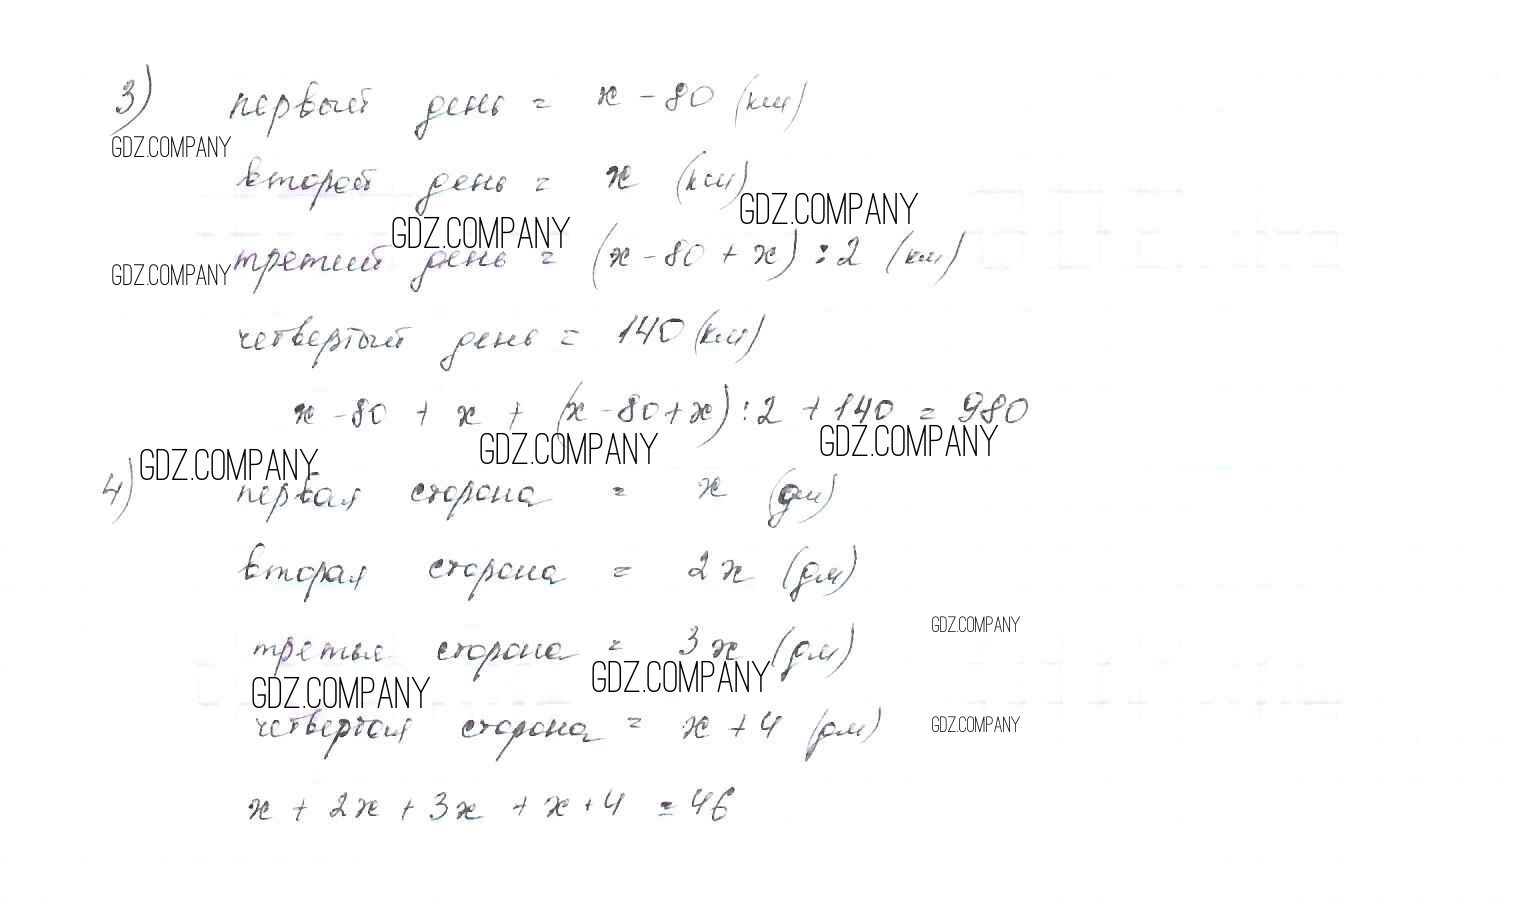 3) первый день = x - 80 (км)
GDZ.COMPANY
второй день = x (км)
GDZ.COMPANY
GDZ.COMPANY
третий день = (x - 80 + x) : 2 (км)
GDZ.COMPANY
четвертый день = 140 (км)
x - 80 + x + (x - 80 + x) : 2 + 140 = 980
GDZ.COMPANY
GDZ.COMPANY
GDZ.COMPANY
4) первая сторона = x (дм)
вторая сторона = 2x (дм)
GDZ.COMPANY
третья сторона = 3x (дм)
GDZ.COMPANY
GDZ.COMPANY
четвертая сторона = x + 4 (дм)
GDZ.COMPANY
x + 2x + 3x + x + 4 = 46